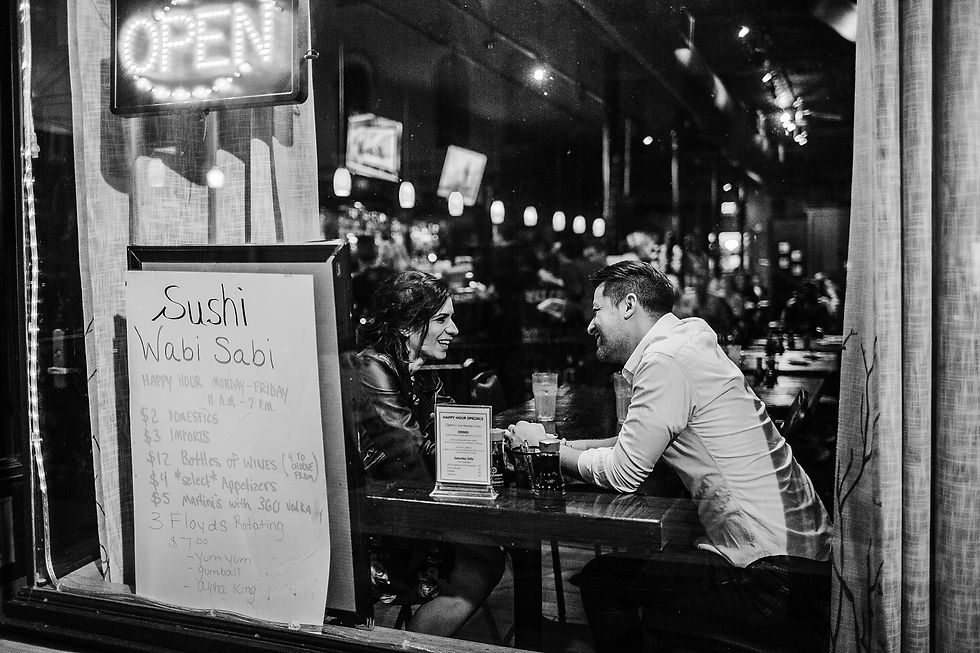 OPEN
Sushi
Wabi Sabi
HAPPY HOUR MONDAY-FRIDAY
11 A.M.-7 P.M.
$2 DOMESTICS
$3 IMPORTS
$12 BOTTLES OF WINES (4 TO CHOOSE FROM)
$4 *select* APPETIZERS
$5 MARTINI'S WITH 360 VODKA
3 Floyds Rotating
$7.00
- Yum Yum
- Gumball
HAPPY HOUR SPECIALS
DRINKS
Saturday Only